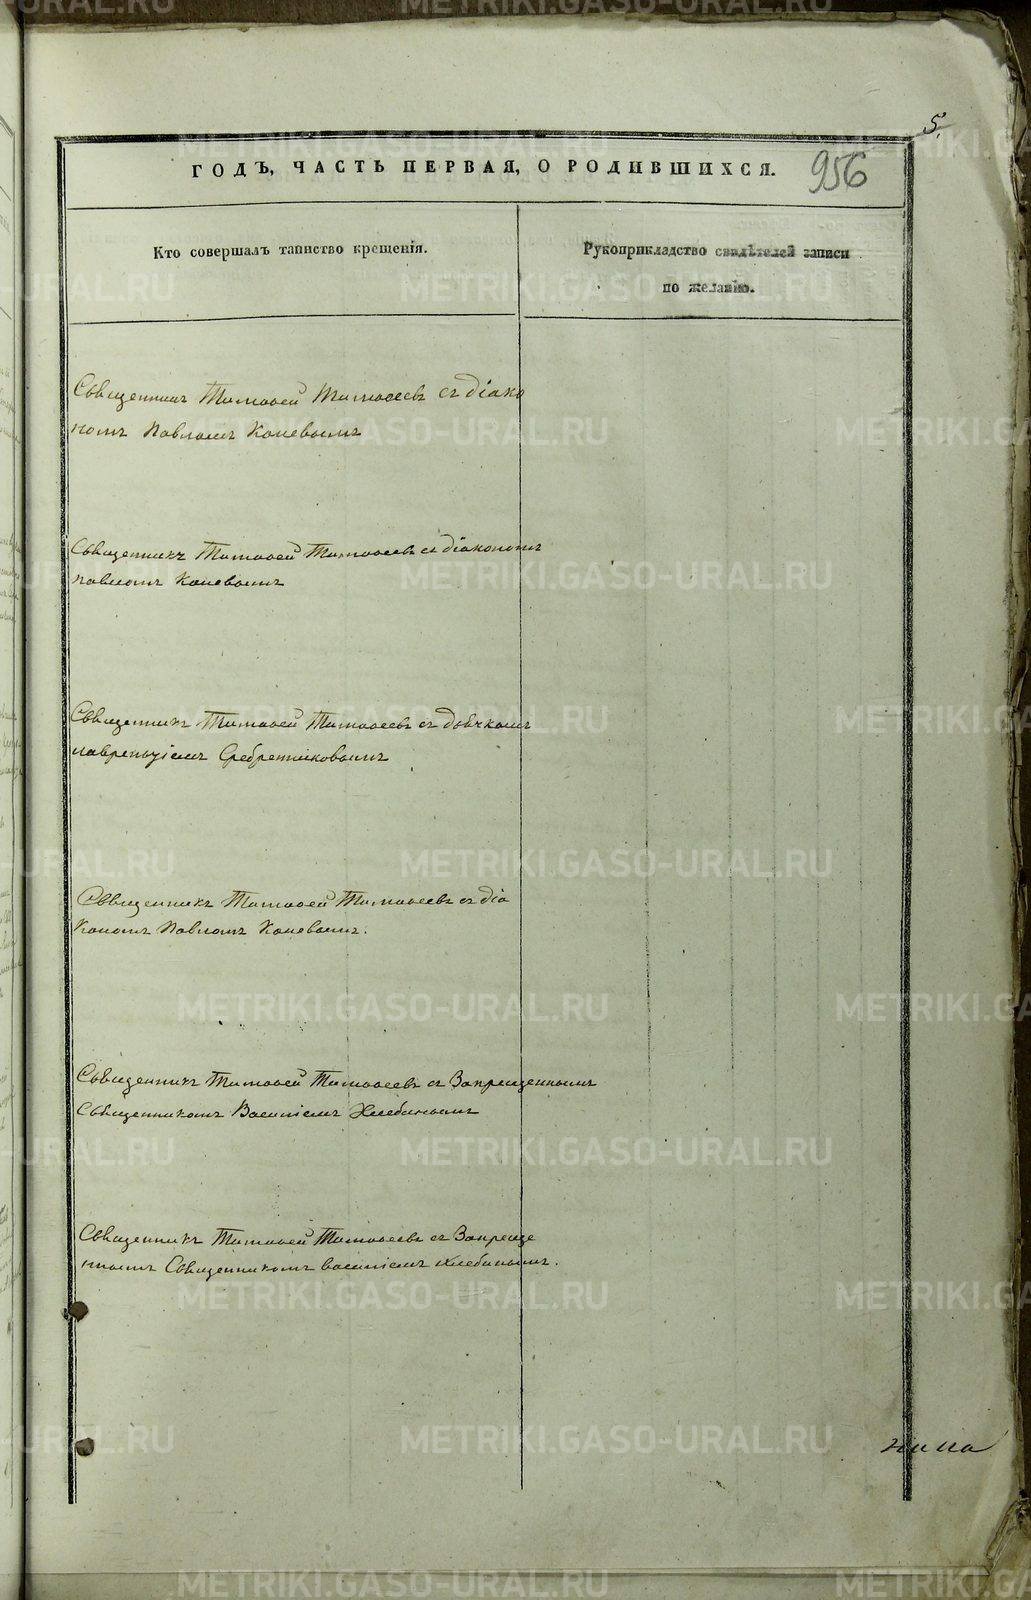 5.
ГОДЪ, ЧАСТЬ ПЕРВАЯ, О РОДИВШИХСЯ. 956
Кто совершалъ таинство крещенія.
Рукоприкладство свидѣтелей записи
по желанію.
Священникъ Тимоѳей Тимоѳеевъ съ діако
номъ Павломъ Коневымъ
Священникъ Тимоѳей Тимоѳеевъ съ діакономъ
Павломъ Коневымъ
Священникъ Тимоѳей Тимоѳеевъ съ дьячкомъ
Лаврентіемъ Сребренниковымъ
Священникъ Тимоѳей Тимоѳеевъ съ діа
кономъ Павломъ Коневымъ.
Священникъ Тимоѳей Тимоѳеевъ съ Запрещеннымъ
Священникомъ Василіемъ Хлебинымъ
Священникъ Тимоѳей Тимоѳеевъ съ Запреще
ннымъ Священникомъ Василіемъ Хлебинымъ.
METRIKI.GASO-URAL.RU